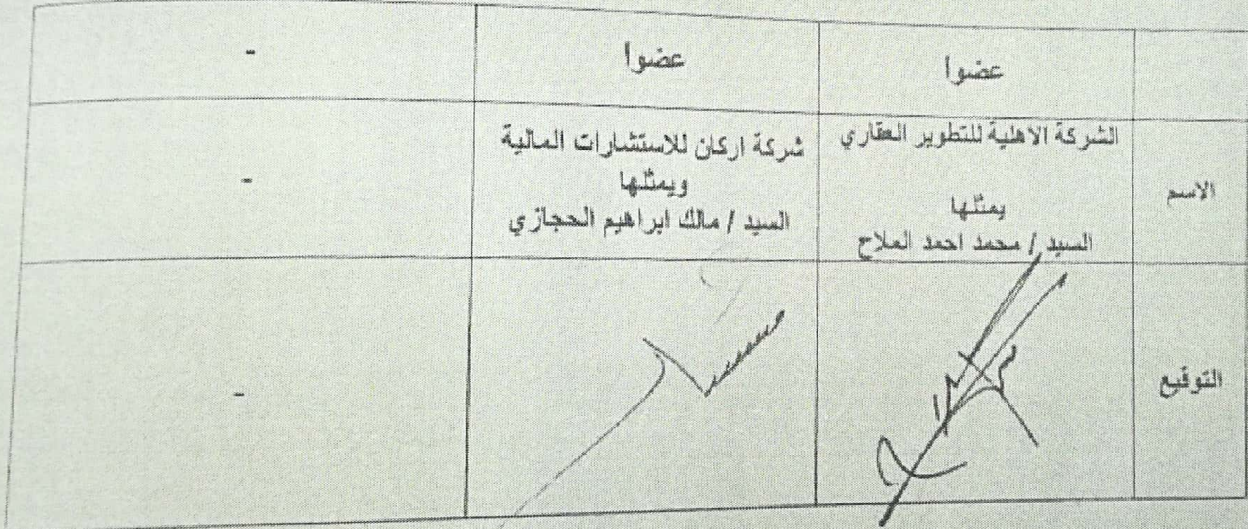 عضوا
عضوا
-
الاسم
الشركة الاهلية للتطوير العقاري
يمثلها
السيد / محمد احمد الملاح
شركة اركان للاستشارات المالية
ويمثلها
السيد / مالك ابراهيم الحجازي
-
التوقيع
-